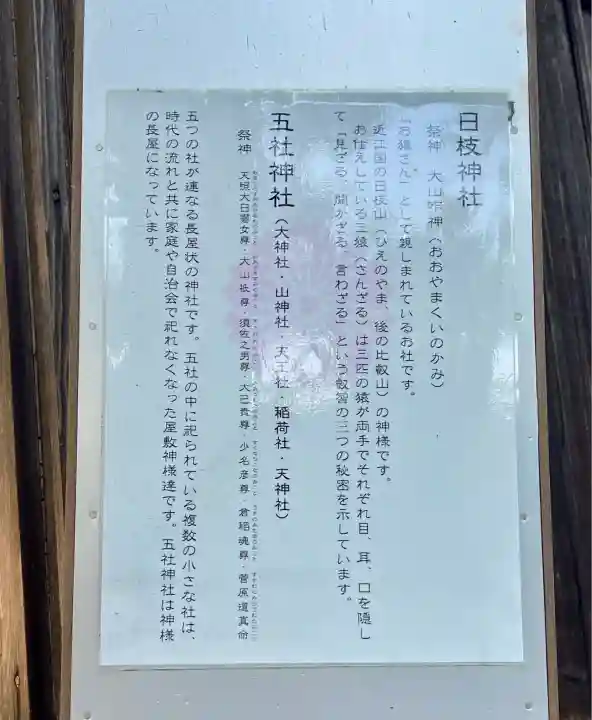 日枝神社
祭神 大山咋神(おおやまくいのかみ)
「お猿さん」として親しまれているお社です。
近江国の日枝山(ひえのやま、後の比叡山)の神様です。
お仕えしている三猿(さんざる)は三匹の猿が両手でそれぞれ目、耳、口を隠し
て「見ざる、聞かざる、言わざる」という叡智の三つの秘密を示しています。
五社神社(大神社・山神社・天王社・稲荷社・天神社)
祭神 天照大日孁女尊・大山祇尊・須佐之男尊・大己貴尊・少名彦尊・倉稲魂尊・菅原道真命
五つの社が連なる長屋状の神社です。五社の中に祀られている複数の小さな社は、
時代の流れと共に家庭や自治会で祀れなくなった屋敷神様達です。五社神社は神様
の長屋になっています。